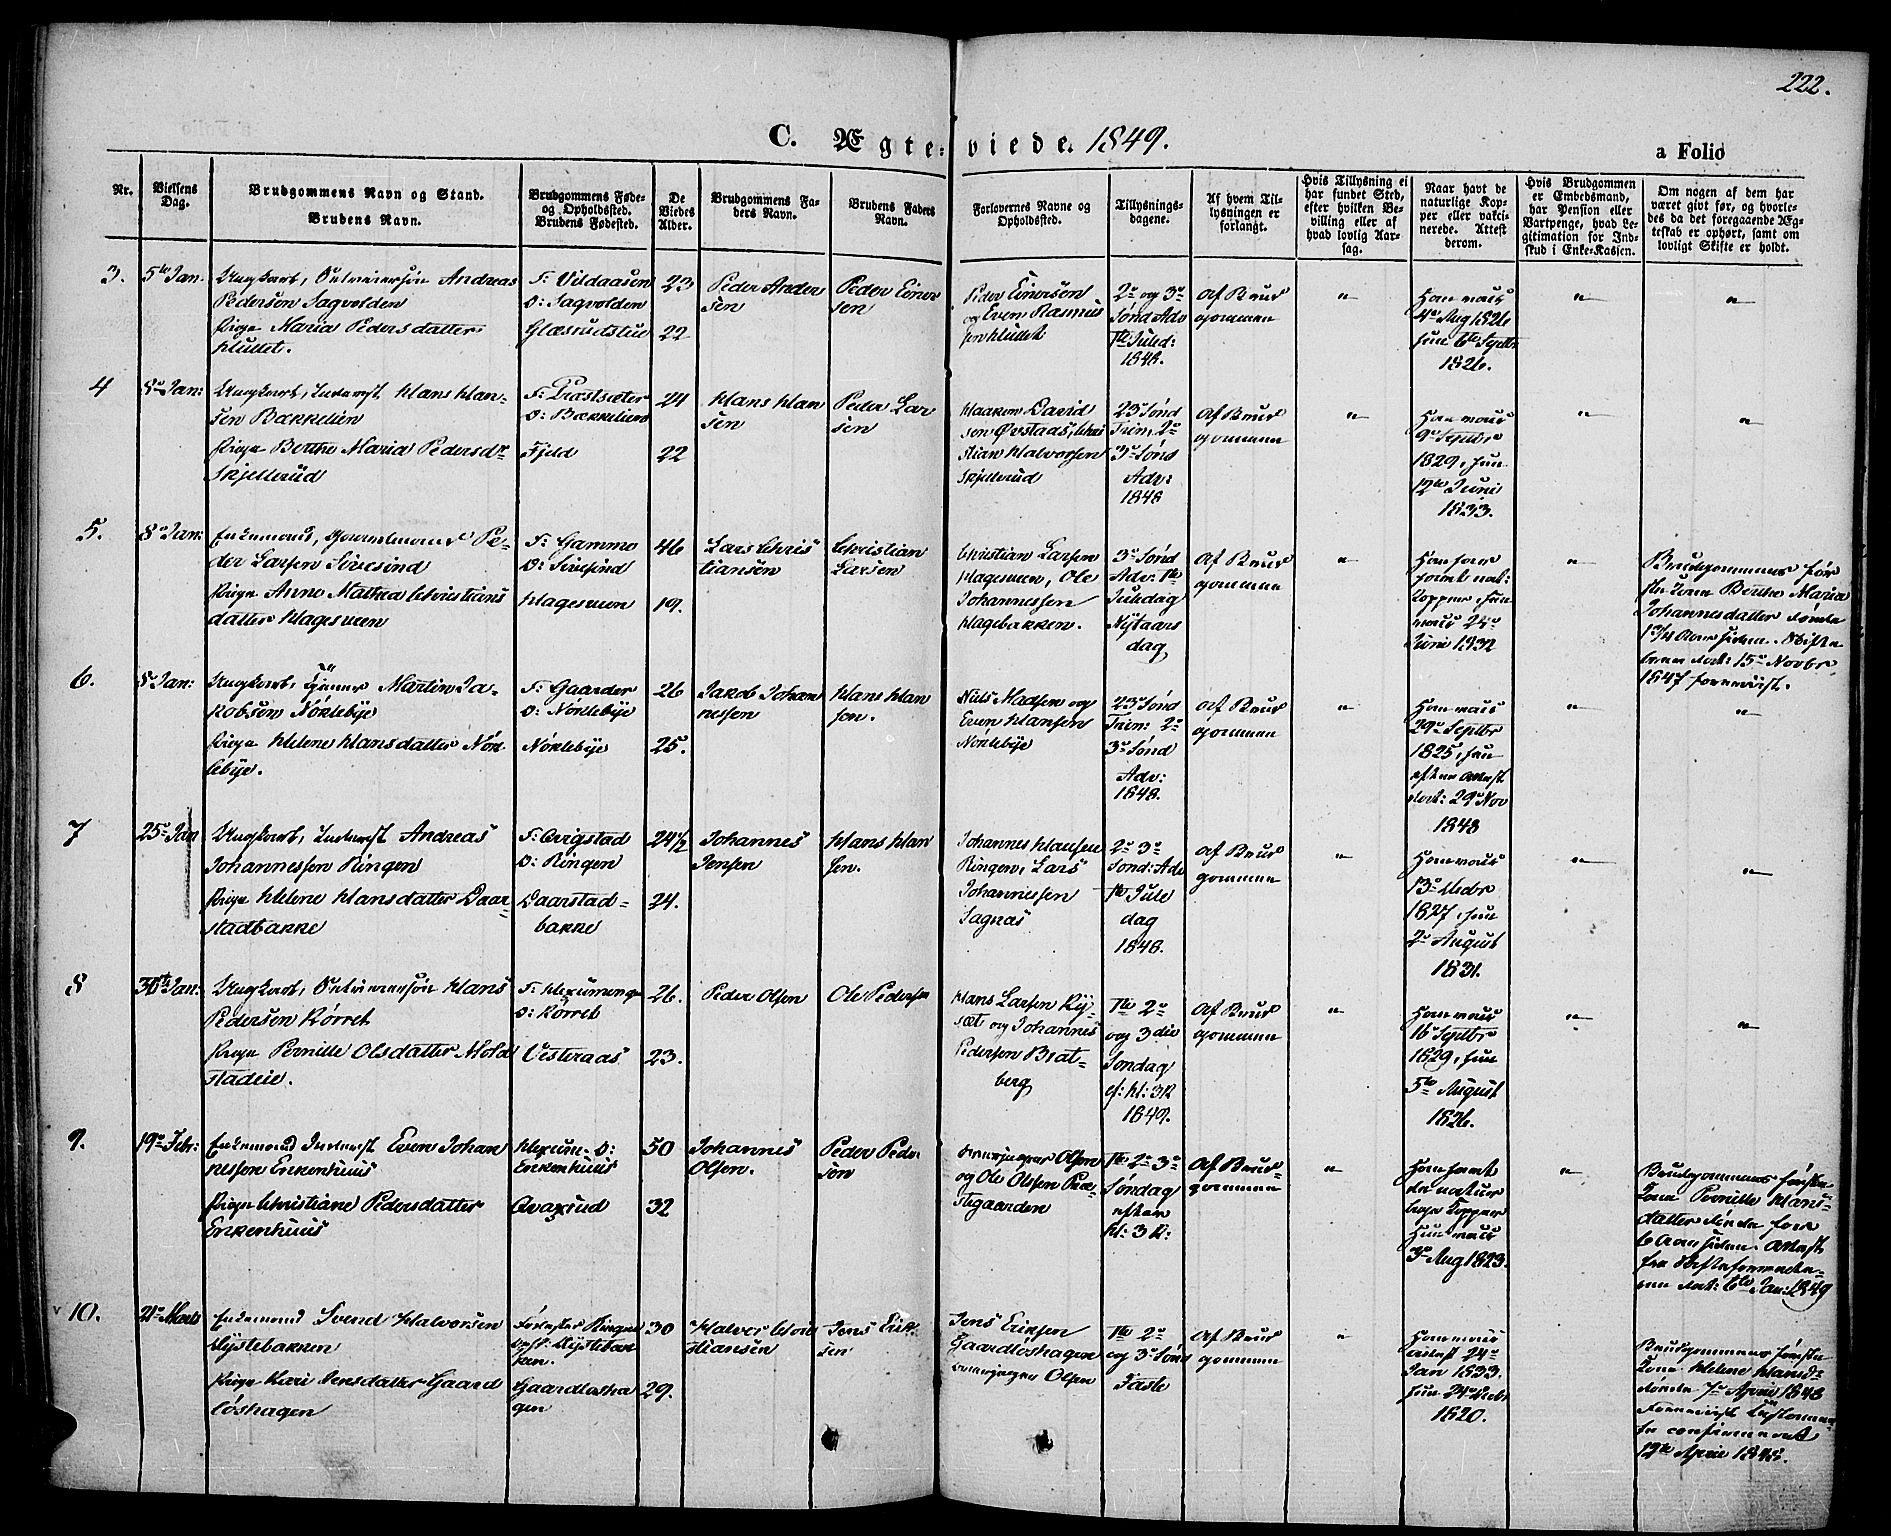 222.
C. Ægte= viede. 1849.
a Folio
Nr.
Vielsens Dag.
Brudgommens Navn og Stand. Brudens Navn.
Brudgommens Føde- og Opholdssted. Brudens Fødested.
De Viedes Alder.
Brudgommens Faders Navn.
Brudens Faders Navn.
Forlovernes Navne og Opholdssted.
Tillysnings-dagene.
Af hvem Tillysningen er forlangt.
Hvis Tillysning ei har fundet Sted, efter hvilken Bevilling eller af hvad lovlig Aarsag.
Naar havt de naturlige Kopper eller vakcinerede. Attest derom.
Hvis Brudgommen er Embedsmand, har Pension eller Vartpenge, hvad Legitimation for Indskud i Enke-Kassen.
Om nogen af dem har været givt før, og hvorledes da det foregaaende Ægteskab er ophørt, samt om lovligt Skifte er holdt.
3.
5te Jan.
Ungkarl, Andreas
Pedersen Sagvolden
Pige Maria Pedersdatter
Hullet.
F: Vildaasen
O: Sagvolden
Glæsrudstue
23
22
Peder Ander
sen
Peder Einer
sen
Peder Einersen
og Even Rasmus
sen Hullet
2den og 3de
Sønd Adv
1ste Juled:
1848.
Af Brud
gommen
"
Han vacc
4de Aug 1826
hun 6te Septbr
1826.
"
"
4
8de Jan:
Ungkarl, Inderst Hans Han-
sen Bækkelien
Pige Berthe Maria Pedersdr
Skjellerud
F: Præstsæter
O: Bækkelien
Fjeld
24
22
Hans Han
sen
Peder Lar
sen
Haaken David
sen Øvstaas, Chri
stian Halvorsen
Skjellerud
23de Sønd
Trin, 2den
3de Sønd
Adv:
1848
Af Brud
gommen
"
Han vacc
9de Septbr
1829, hun
12te Juni
1833.
"
"
5.
8de Jan:
Enkemand, Gaardmand Pe-
der Larsen
Pige Anne Mathea Christians
datter Hagesveen
F: Gammo
Hagesveen
46
19.
Lars Chris
tiansen
Christian
Larsen
Christian Larsen
Hagesveen, Ole
Johannessen
Hagebakken.
3de Sønd
Adv: 1ste
Juledag
Nytaars
dag
Af Brud
gommen
"
Han har
havt nat:
Kopper, hun
vacc 24de
Juni 1832
"
Brudgommens før
ste Kone Berthe Maria
Johannesdatter døde
1 3/4 Aar siden. Skifte
brev dat: 15de Novbr
1847 forevist.
6.
8de Jan:
Ungkarl, Tjener Martin Ja-
kobsen Nøklebye
Pige Helene Hansdatter Nøk-
lebye.
F: Gaarder
O: Nøklebye
Nøklebye
26
25.
Jakob Johan
nessen
Hans Han
sen.
Nils Madsen og
Even Hansen
Nøklebye
23de Sønd
Trin: 2den
3de Sønd
Adv:
1848.
Af Brud
gommen
"
Han vacc
29de Septbr
1825, hun
efter Attest
dat: 29de Nov
1848
"
"
7
25de Jan
Ungkarl, Inderst Andreas
Johannessen Ringen
Pige Helene Hansdatter Daar-
stadbakke
F: Qvigstad
O: Ringen
Daarstad-
bakke
24 1/2
24.
Johannes
Jensen
Hans Han
sen.
Johannes Hansen
Ringen, Lars
Johannessen
Sagnæs
2den 3de
Sønd: Adv
1ste Jule
dag
1848.
Af Brud
gommen
"
Han vacc
13de
1827, hun
2den August
1831.
"
"
8
30te Jan:
Ungkarl, Hans
Pedersen Kørret
Pige Pernille Olsdatter Mold
stadeie.
O: Kørret
Vesteraas
26.
23.
Peder Olsen
Ole Pedersen
Hans Larsen Ry-
sæt og Johannes
Pedersen Brat-
berg
1ste 2den
og 3die
Søndag
ef: Hl: 3K
1849.
Af Brud
gommen
"
Han vacc
16de Septbr
1829, hun
5te August
1826.
"
"
9.
19de Febr:
Enkemand Inderst Even Johan
nessen Enkenhuus
Pige Christiane Pedersdatter
Enkenhuus
Enkenhuus
50
32
Johannes
Olsen.
Peder Peder
sen
Olsen
og Ole Olsen Præ-
stegaarden
1ste 2den 3de
Søndag
efter
Hl: 3 K:
Af Brud-
gommen
"
Han havt
de natur
lige Kopper
Hun vacc
3de Aug 1823.
"
Brudgommens første
Kone Pernille Hans-
datter døde for
6 Aar siden. Attest
fra Skifteforvalte-
ren dat: 6te Jan: 1849
10.
21de Marts
Enkemand Svend Halvorsen
Nystebakken
Pige Kari Jensdatter Gaard
løshagen
Gaardløsha
gen
30
29.
Halvor Chri
stiansen
Jens Erik-
sen
Jens Eriksen
Gaardløshagen
Olsen
1ste 2den
og 3de Sønd
Faste
Af Brud
gommen
"
Han vacc
attest 24de
Jan 1833.
hun 24de
1820.
Brudgommens første
Kone Helene Hansd:
døde 7de April 1848
12te April 1848.